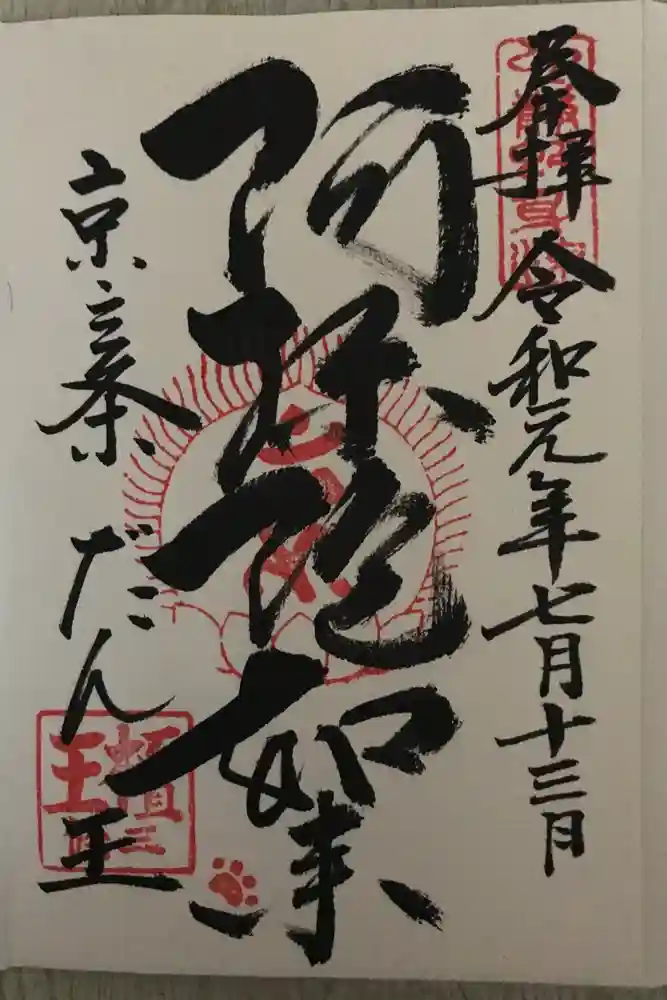 奉拝 令和元年七月十三日
阿弥陀如来
京三条 だん王